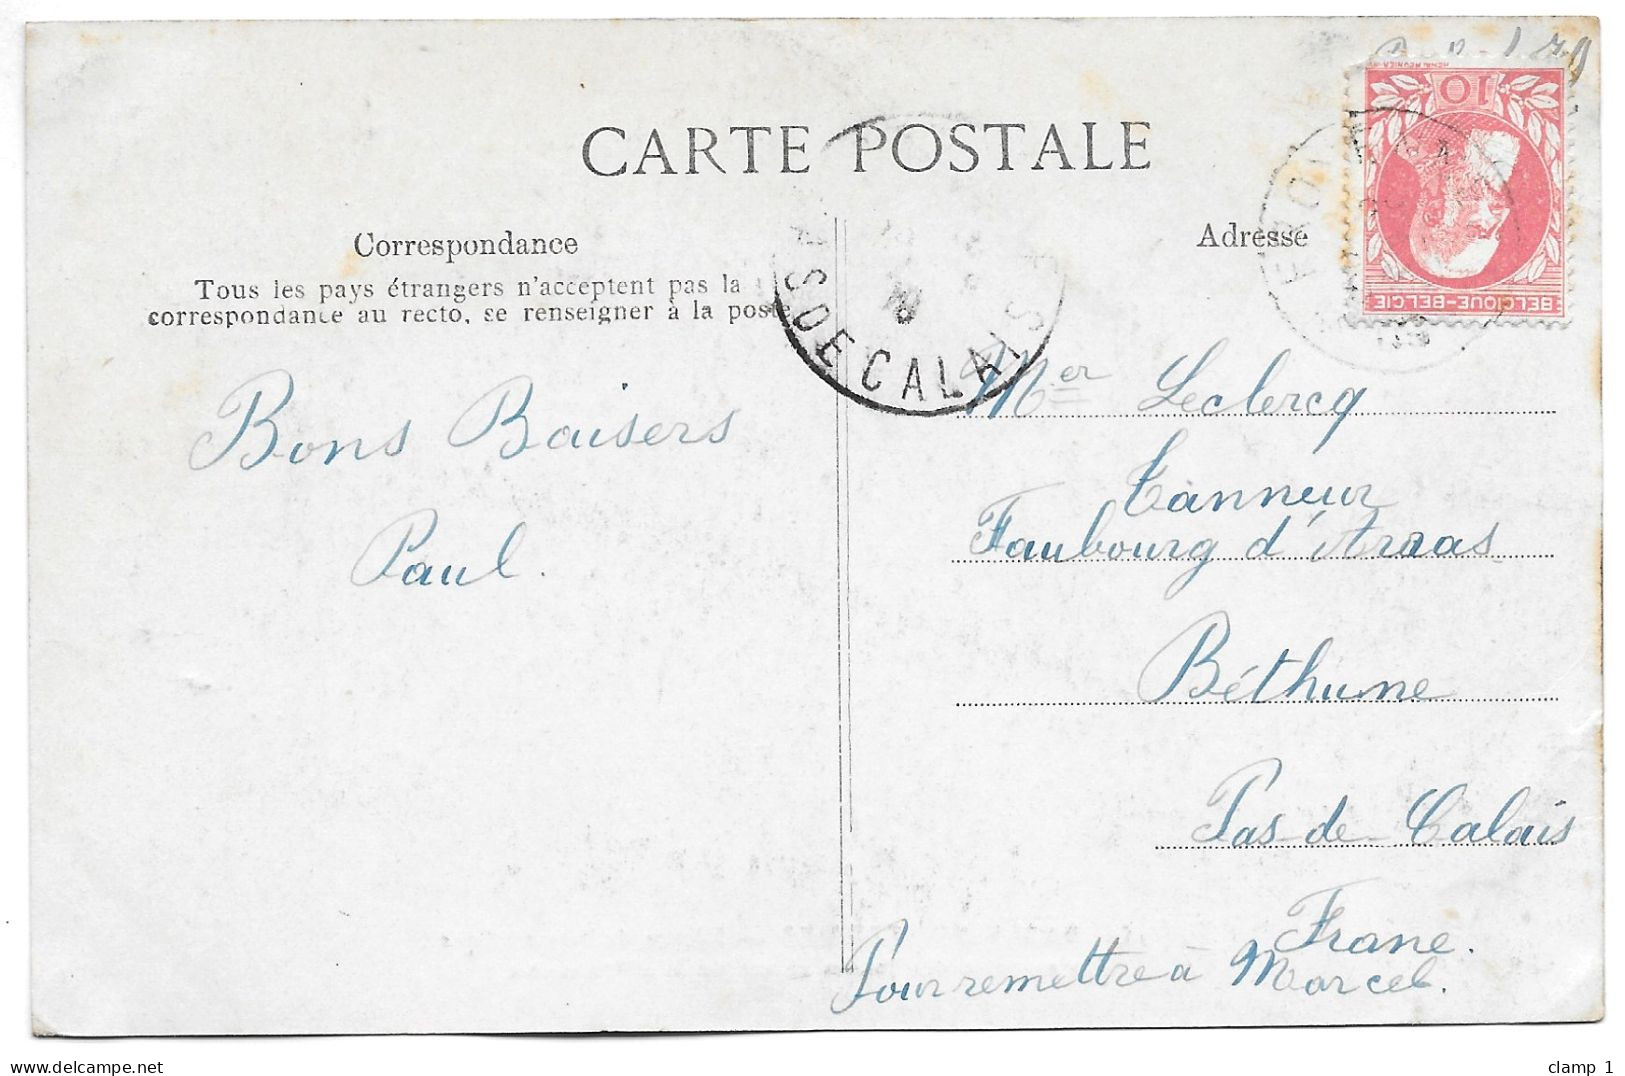 CARTE POSTALE
Correspondance
Tous les pays étrangers n'acceptent pas la
correspondance au recto, se renseigner à la poste
Bons Baisers
Paul.
Adresse
10
BELGIQUE-BELGIE
S DE CALAIS
Mer Leclercq
Tanneur
Faubourg d'Arras
Béthune
Pas-de-Calais
Frane.
Pour remettre à Marcel.
clamp 1